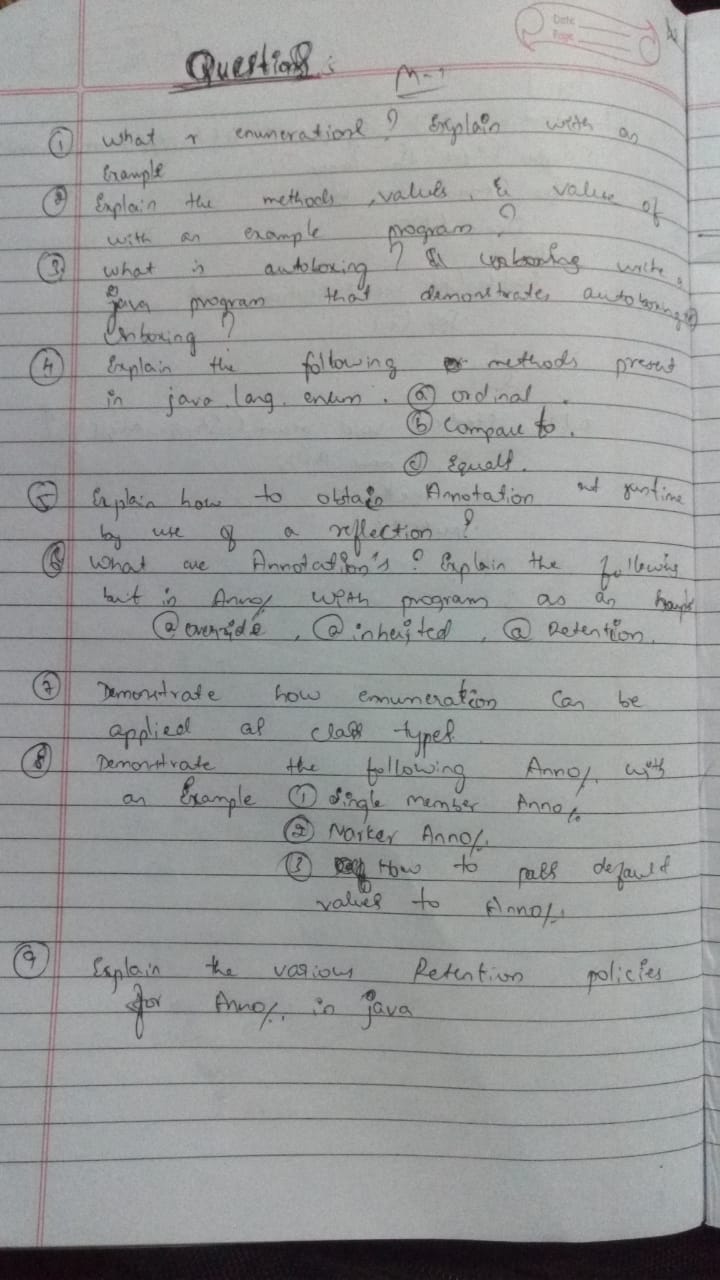 Date
Page
Questions :
M-1
① What r enunerations? Explain with an
Example
② Explain the methods, values, & value of
with an example program?
③ what is autoboxing? & unboxing write a
java program that demonstrates autoboxing &
Unboxing?
④ Explain the following methods present
in java.lang.enum. ⓐ ordinal.
ⓑ Compare to.
ⓒ Equals.
⑤ Explain how to obtain Annotation at runtime
by use of a reflection?
⑥ What are Annotation's? Explain the following
but in Anno/. with program as an Example
@override, @inherited, @Retention.
⑦ Demonstrate how emuneration can be
applied as class types.
⑧ Demonstrate the following Anno/. with
an Example ① single member Anno/.
② Marker Anno/.
③ How to pass default
values to Anno/.
⑨ Explain the various Retention policies
for Anno/. in java